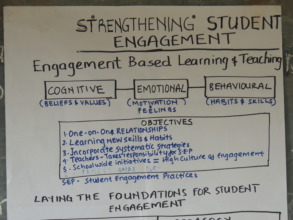 STRENGTHENING STUDENT
ENGAGEMENT
Engagement Based Learning & Teaching
COGNITIVE EMOTIONAL BEHAVIOURAL
(BELIEFS & VALUES) (MOTIVATION FEELINGS) (HABITS & SKILLS)
OBJECTIVES
1- One-on-One RELATIONSHIPS
2- Learning NEW Skills & Habits
3- Incorporate Systematic Strategies
4- Teachers - Takes responsibility for SEP
5- Schoolwide Initiatives = High Culture of Engagement
SEP - Student Engagement Practices
LAYING THE FOUNDATIONS FOR STUDENT
ENGAGEMENT